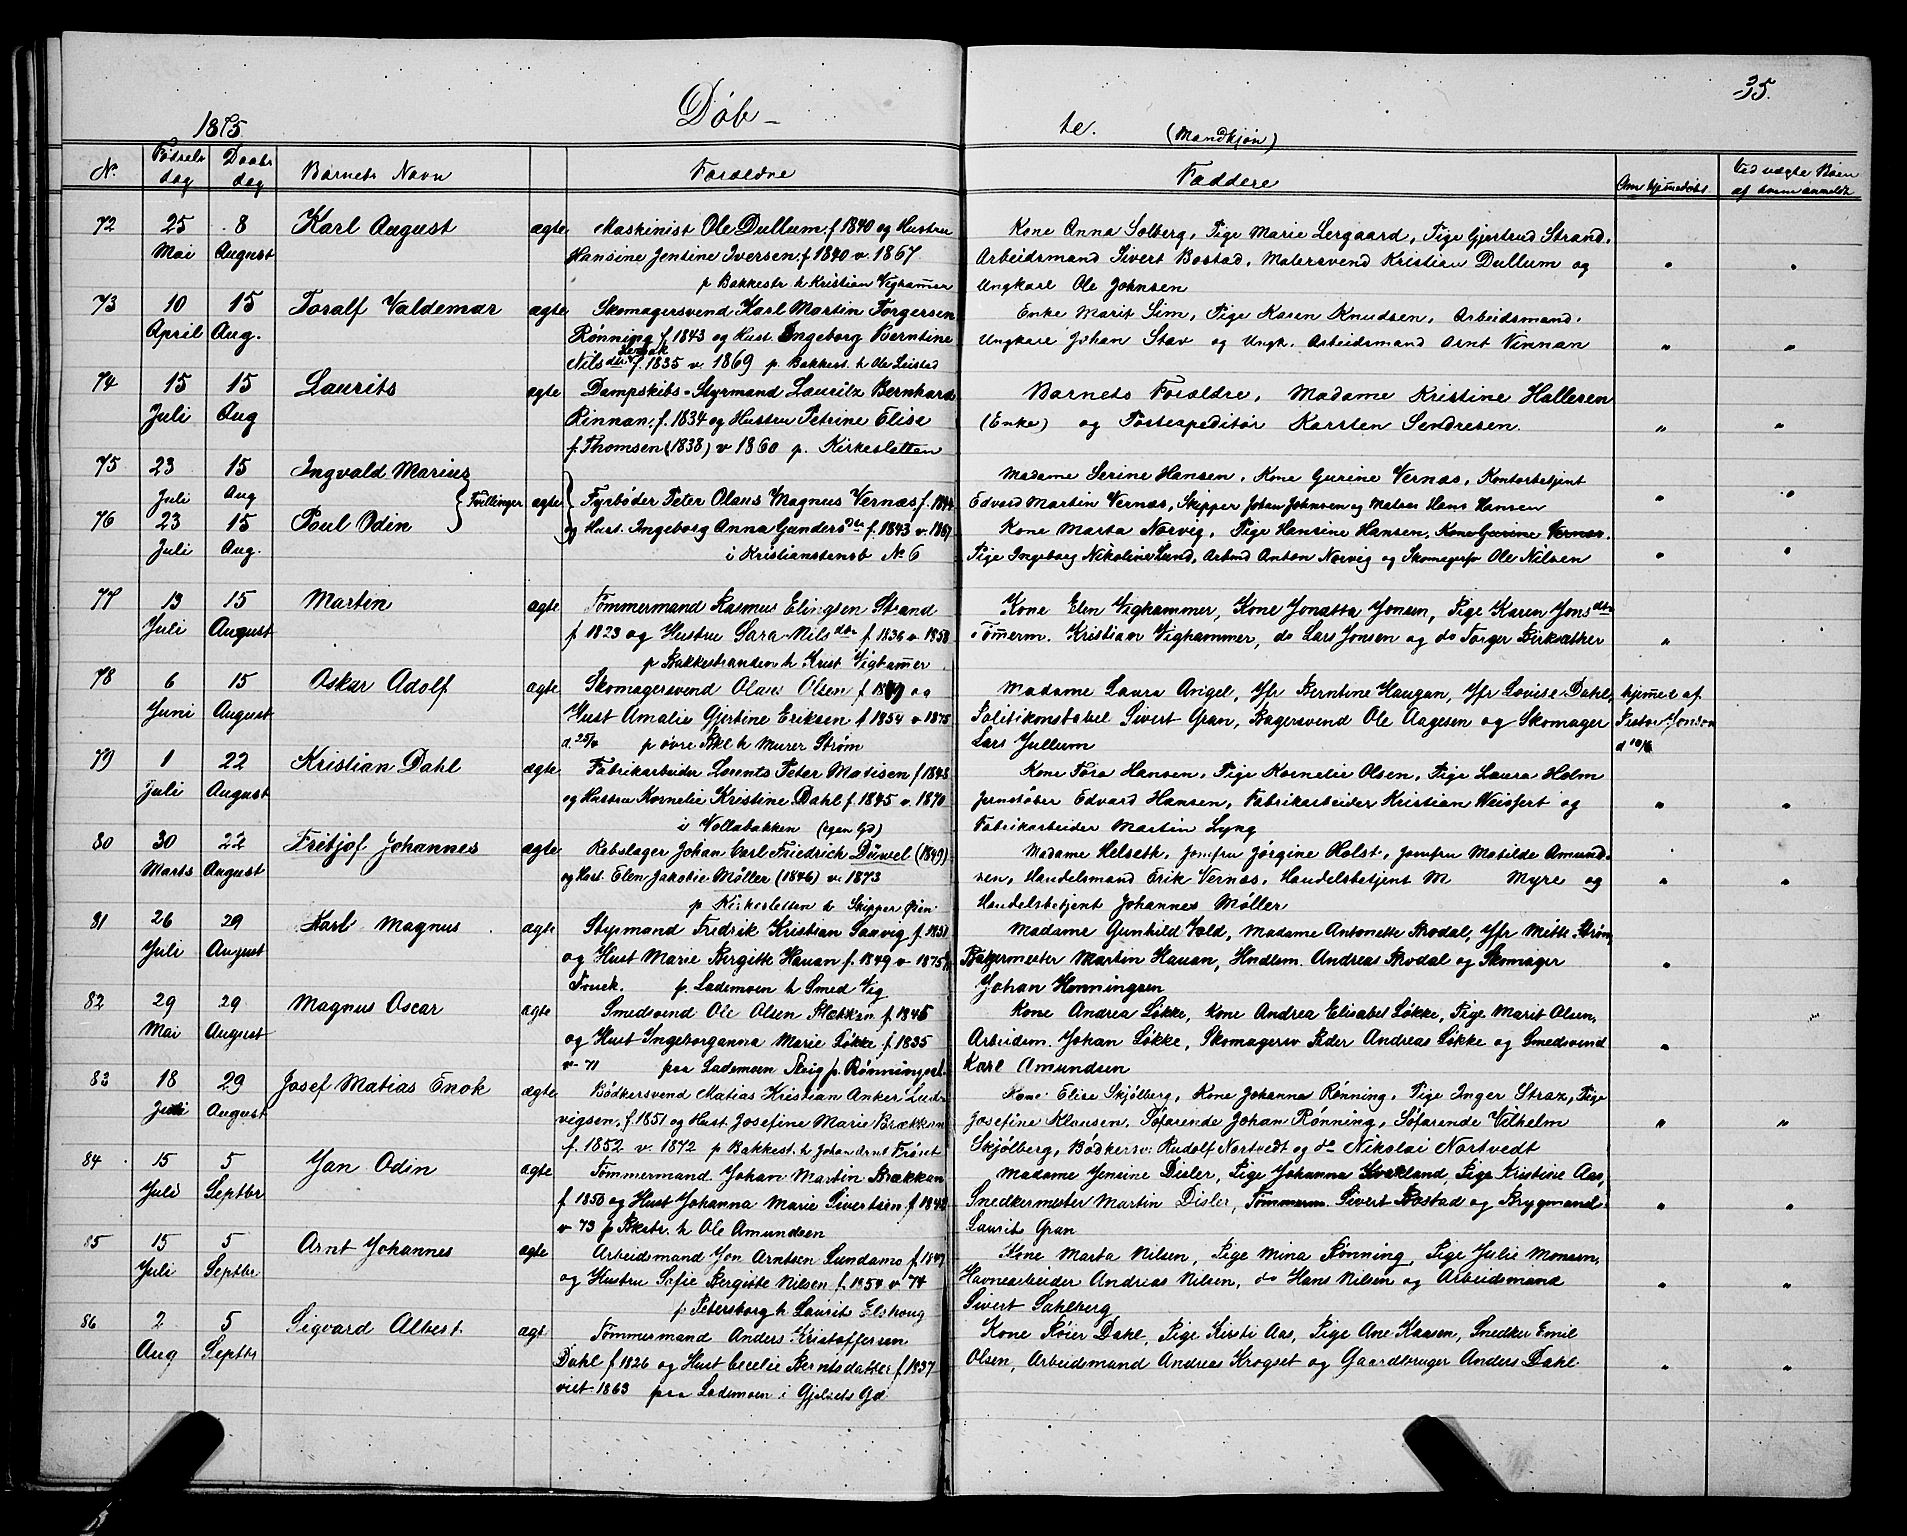 35.
1875 Döb- te. (Mandkjön)
N. Födsels dag Daabs dag Barnets Navn Forældre Faddere Om hjemmedøbt Ved uægte Børn af hvem anmeldt
72 25 Mai 8 August Karl August ægte Maskinist Ole Dullum f. 1840 og Hustru
Hansine Jentine Iversen f. 1840 v. 1867
p Bakkestr. h Kristian Vighammer
Kone Anna Solberg, Pige Marie Lergaard, Pige Gjertrud Strand,
Arbeidsmand Sivert Bostad, Malersvend Kristian Dullum og
Ungkarl Ole Johnsen
73 10 April 15 Aug. Toralf Valdemar ægte Skomagersvend Karl Martin Torgersen
Rønning f. 1843 og Hust. Ingeborg Berntine
Nilsdtr f. 1835 v. 1869 p. Bakkest. h Ole Leistad
Enke Marit Sim, Pige Karen Knudsen, Arbeidsmand.
Ungkarl Johan Stav og Ungk. Arbeidsmand Arnt Vinnan
74 15 Juli 15 Aug Laurits ægte Dampskibs-Styrmand Lauritz Bernhard
Rinnan, f. 1834 og Hustru Petrine Elise
f. Thomsen (1838) v 1860 p. Kirkesletten
Barnets Forældre, Madame Kristine Hallesen
(Enke) og Postexpeditør Karsten Sendresen.
75 23 Juli 15 Aug Ingvald Marius Tvillinger ægte Fyrbøder Peter Olaus Magnus Vernæs f. 1844
Madame Serine Hansen, Kone Gurine Vernæs, Kontorbetjent
Edvard Martin Vernæs, Skipper Johan Johnsen og Matros Hans Hansen
76 23 Juli 15 Aug. Poul Odin og Hust. Ingeborg Anna Gundersdtr f. 1843 v. 1867
i Kristianstensb No 6
Kone Marta Norvig, Pige Hansine Hansen, Kone Gurine Vernæs.
Pige Ingeborg Nikoline Lund, Arbmd Anton Norvig og Skomagersv Ole Nilsen
77 13 Juli 15 August Martin ægte Tømmermand Rasmus Elingsen Strand
f 1823 og Hustru Sara Nilsdtr f. 1836 v. 1858
p Bakkestranden h Krist Vighammer
Kone Elen Vighammer, Kone Jonetta Jonsen, Pige Karen Jonsdtr
Tømerm. Kristian Vighammer, do Lars Jonsen og do Torger Birksether
78 6 Juni 15 August Oskar Adolf ægte Skomagersvend Olaus Olsen f 1849 og
Hust Amalie Gjertine Eriksen f 1854 v 1875
p øvre Bkl h Murer Strøm
Madame Laura Angel, Jfr Berntine Haugan, Jfr Lovise Dahl,
Politikonstabel Sivert Gran, Bagersvend Ole Aagesen og Skomager
Lars Jullum
hjemed af
Pastor Jonson
d 10/6
79 1 Juli 22 August Kristian Dahl ægte Fabrikarbeider Lorents Peter Matisen f 1843
og Hustru Kornelie Kristine Dahl f. 1845 v. 1870
i Vollabakken (egen Gd)
Kone Tora Hansen, Pige Kornelie Olsen, Pige Laura Holm
Jernstøber Edvard Hansen, Fabrikarbeider Kristian Weisfert og
Fabrikarbeider Martin Lyng
80 30 Marts 22 August Fritjof Johannes ægte Rebslager Johan Carl Friedrich Düwel (1849)
og Hust. Elen Jakobie Møller (1846) v. 1873
p Kirkesletten h Skipper Øien
Madame Helseth, Jomfru Jørgine Holst, Jomfru Matilde Amund-
sen, Handelsmand Erik Vernæs, Handelsbetjent M Myre og
Handelsbetjent Johannes Møller
81 26 Juli 29 August Karl Magnus ægte Styrmand Fredrik Kristian Saavig f. 1851
og Hust Marie Bergitte Hauan f. 1849 v 1875
p. Lademoen h Smed Vig
Madame Gunhild Vold, Madame Antonette Brodal, Jfr Mette Strøm
Bagermester Martin Hauan, Hndlsm. Andreas Brodal og Skomager
Johan Henningsen
82 29 Mai 29 August Magnus Oscar ægte Smedsvend Ole Olsen Slætkan f. 1845
og Hust Ingeborganna Marie Løkke f. 1835
v 71 paa Lademoen
Kone Andrea Løkke, Kone Andrea Elisabet Løkke, Pige Marit Olsen,
Arbeidsm. Johan Løkke, Skomagersv Peder Andreas Løkke og Smedsvend
Karl Amundsen
83 18 Juli 29 August Josef Matias Enok ægte Bødkersvend Matias Kristian Anker Lud-
vigsen, f. 1851 og Hust Josefine Marie Brækkan
f. 1852 v. 1872 p Bakkest. h Johan Arnt Frøset
Kone Elise Skjølberg, Kone Johanna Rønning, Pige Inger Straz, Pige
Josefine Klausen, Søfarende Johan Rønning, Søfarende Vilhelm
Skjølberg, Bødkersv. Rudolf Nortvedt og do Nikolai Nortvedt
84 15 Juli 5 Septbr Jan Odin ægte Tømmermand Johan Martin Brækkan
f 1850 og Hust Johanna Marie Sivertsen f 1848
v 73 p Bkstr. h Ole Amundsen
Madame Jensine Disler, Pige Johanna Kvakland, Pige Kristine Aas,
Snedkermester Martin Disler, Tømmerm Sivert Bostad og Brygmand
Laurits Gran
85 15 Juli 5 Septbr Arnt Johannes ægte Arbeidsmand Jon Arntsen Lundamo f 1849
og Hustru Sofie Bergitte Nilsen f. 1850 v 74
p. Petersborg h Laurits Elshoug
Kone Marta Nilsen, Pige Mina Rønning, Pige Julie Monsen,
Havnearbeider Andreas Nilsen, do Hans Nilsen og Arbeidsmand
Sivert Sahlberg
86 2 Aug 5 Septbr Sigvard Albert. ægt Tømmermand Anders Kristoffersen
Dahl f 1826 og Hust Cecilie Berntsdatter f 1837
viet 1863 paa Lademoen i Gjelsets Gd
Kone Røier Dahl, Pige Kirsti Aas, Pige Ane Kaasen, Snedker Emil
Olsen, Arbeidsmand Andreas Krogset og Gaardbruger Anders Dahl